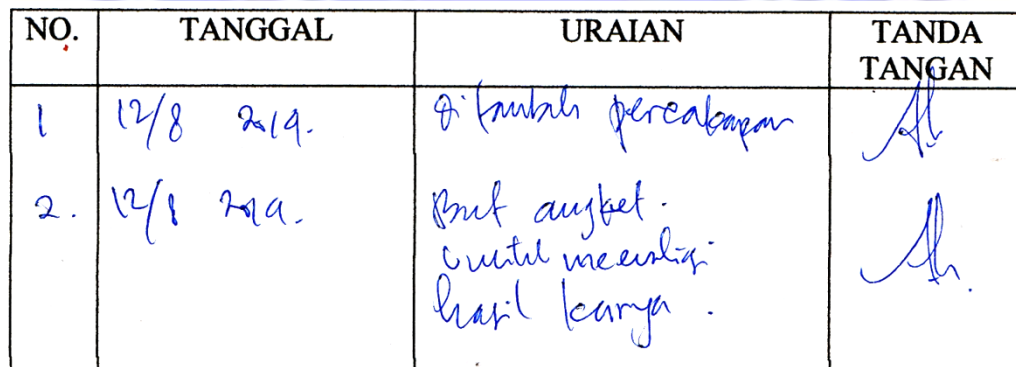 NO. TANGGAL URAIAN TANDA TANGAN
1 12/8 2019. Ditambah percakapan
2. 12/8 2019. Buat angket.
untuk
hasil karya.